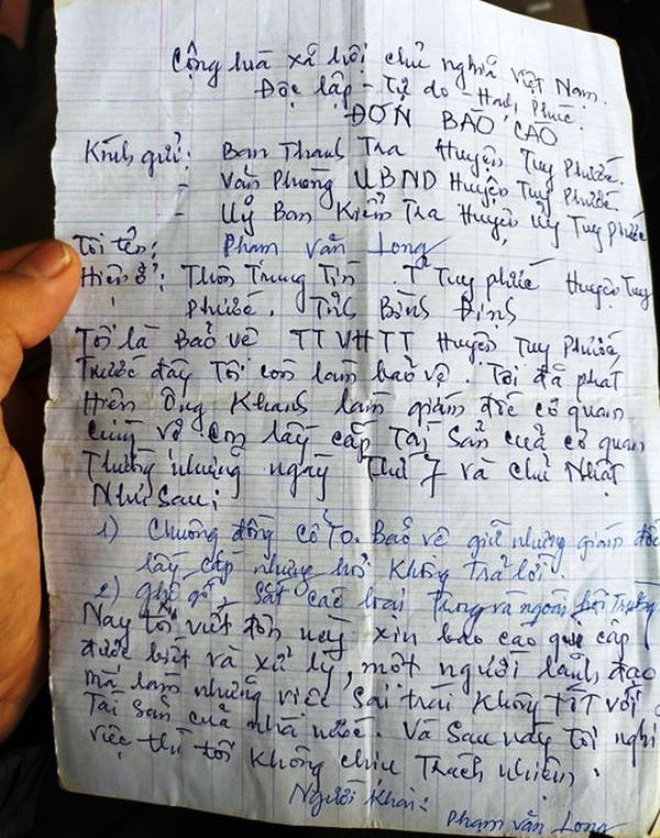 Cộng hoà xã hội chủ nghĩa Việt Nam.
Độc lập - Tự do - Hạnh Phúc.
ĐƠN BÁO CÁO
Kính gửi: Ban Thanh Tra Huyện Tuy Phước.
- Văn Phòng UBND Huyện Tuy Phước.
- Uỷ Ban Kiểm Tra Huyện Uỷ Tuy Phước
Tôi tên: Phạm Văn Long
Hiện ở: Thôn Trung Tín. Tuy phước Huyện Tuy
Phước. Tỉnh Bình Định
Tôi là Bảo vệ TTVHTT Huyện Tuy Phước,
Trước đây Tôi còn làm bảo vệ. Tôi đã phát
Hiện Ông Khanh làm giám đốc cơ quan
cùng vợ con lấy cắp Tài Sản của cơ quan
Thường những ngày Thứ 7 và chủ Nhật
Như Sau:
1) Chuông đồng cổ To. Bảo vệ giữ nhưng giám đốc
lấy cắp nhưng hỏi Không Trả lời.
2) Ghế gỗ, Sắt các loại Trong và ngoài hội Trường
Nay tôi viết đơn này xin báo cáo quý cấp
được biết và xử lý, một người lãnh đạo
mà làm những việc Sai trái Không tốt với
Tài Sản của nhà nước. Và Sau này Tôi nghỉ
việc thì tôi Không chịu Trách nhiệm.
Người Khai:
Phạm Văn Long